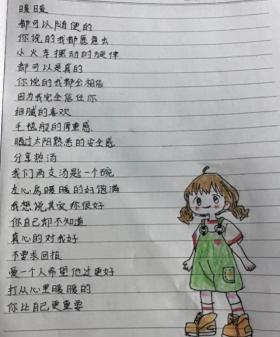 暖暖
都可以随便的
你说的我都愿意去
小火车摆动的旋律
都可以是真的
你说的我都会相信
因为我完全信任你
细腻的喜欢
毛毯般的厚重感
晒过太阳熟悉的安全感
分享热汤
我们两支汤匙一个碗
左心房暖暖的好饱满
我想说其实你很好
你自己却不知道
真心的对我好
不要求回报
爱一个人希望他过更好
打从心里暖暖的
你比自己更重要